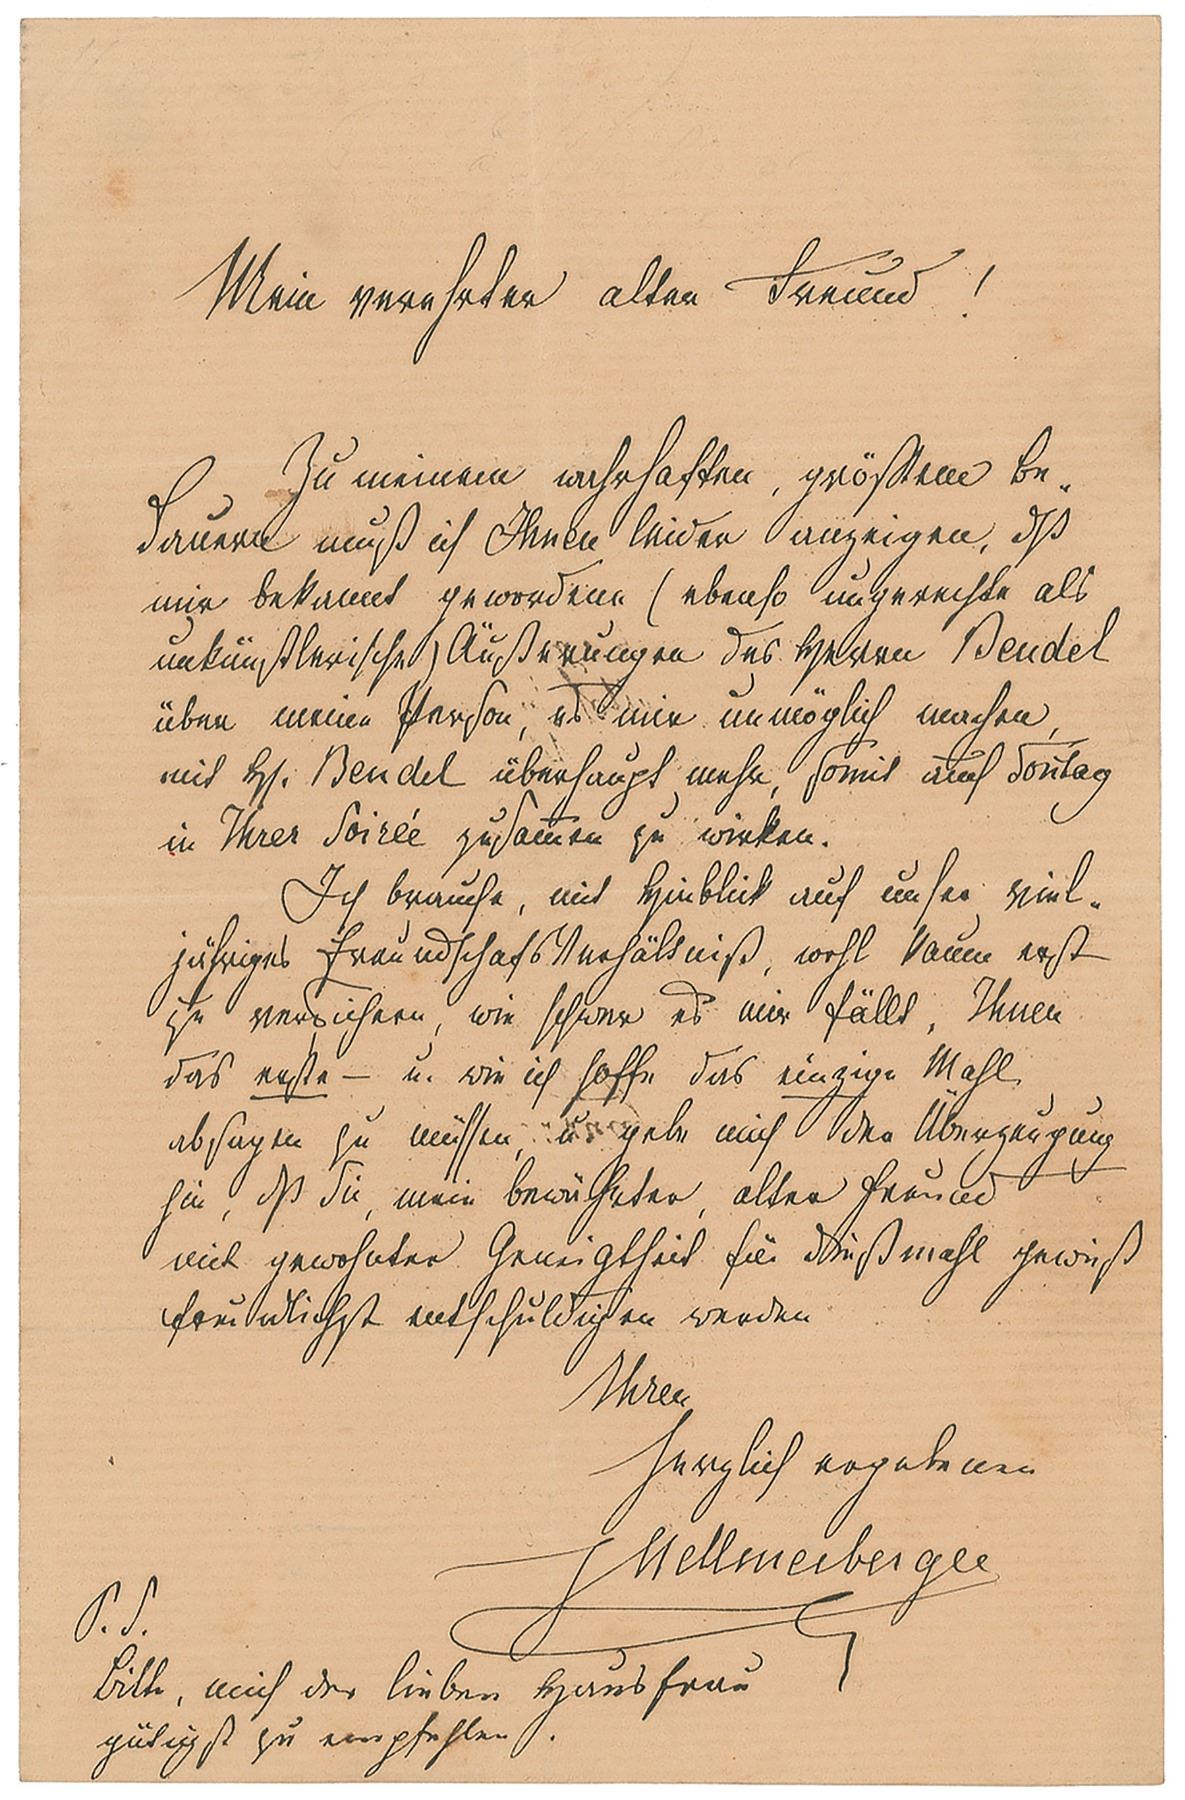 Mein verehrter alter Freund!
Zu meinem wahrhaften, größtem Be-
dauern muß ich Ihnen leider anzeigen, dß
mir bekannt gewordene (ebenso ungerechte als
unkünstlerische) Äußerungen des Herrn Bendel
über meine Person, es mir unmöglich machen,
mit H. Bendel überhaupt mehr, somit auch Sontag
in Ihrer Soirée zusamen zu wirken.
Ich brauche, mit Hinblick auf unser viel-
jähriges Freundschafs Verhältniß, wohl kaum erst
zu versichern, wie schwer es mir fällt, Ihnen
das erste – u. wie ich hoffe das einzige Mahl
absagen zu müssen, u. gebe mich der Überzeugung
hin, dß Sie, mein bewährter, alter Freund
mit gewohnter Geneigtheit für dießmahl gewiß
freundlichst entschuldigen werden
Ihren
herzlich ergebenen
JHellmesberger
P.S.
Bitte, mich der lieben Hausfrau
gütigst zu empfehlen.